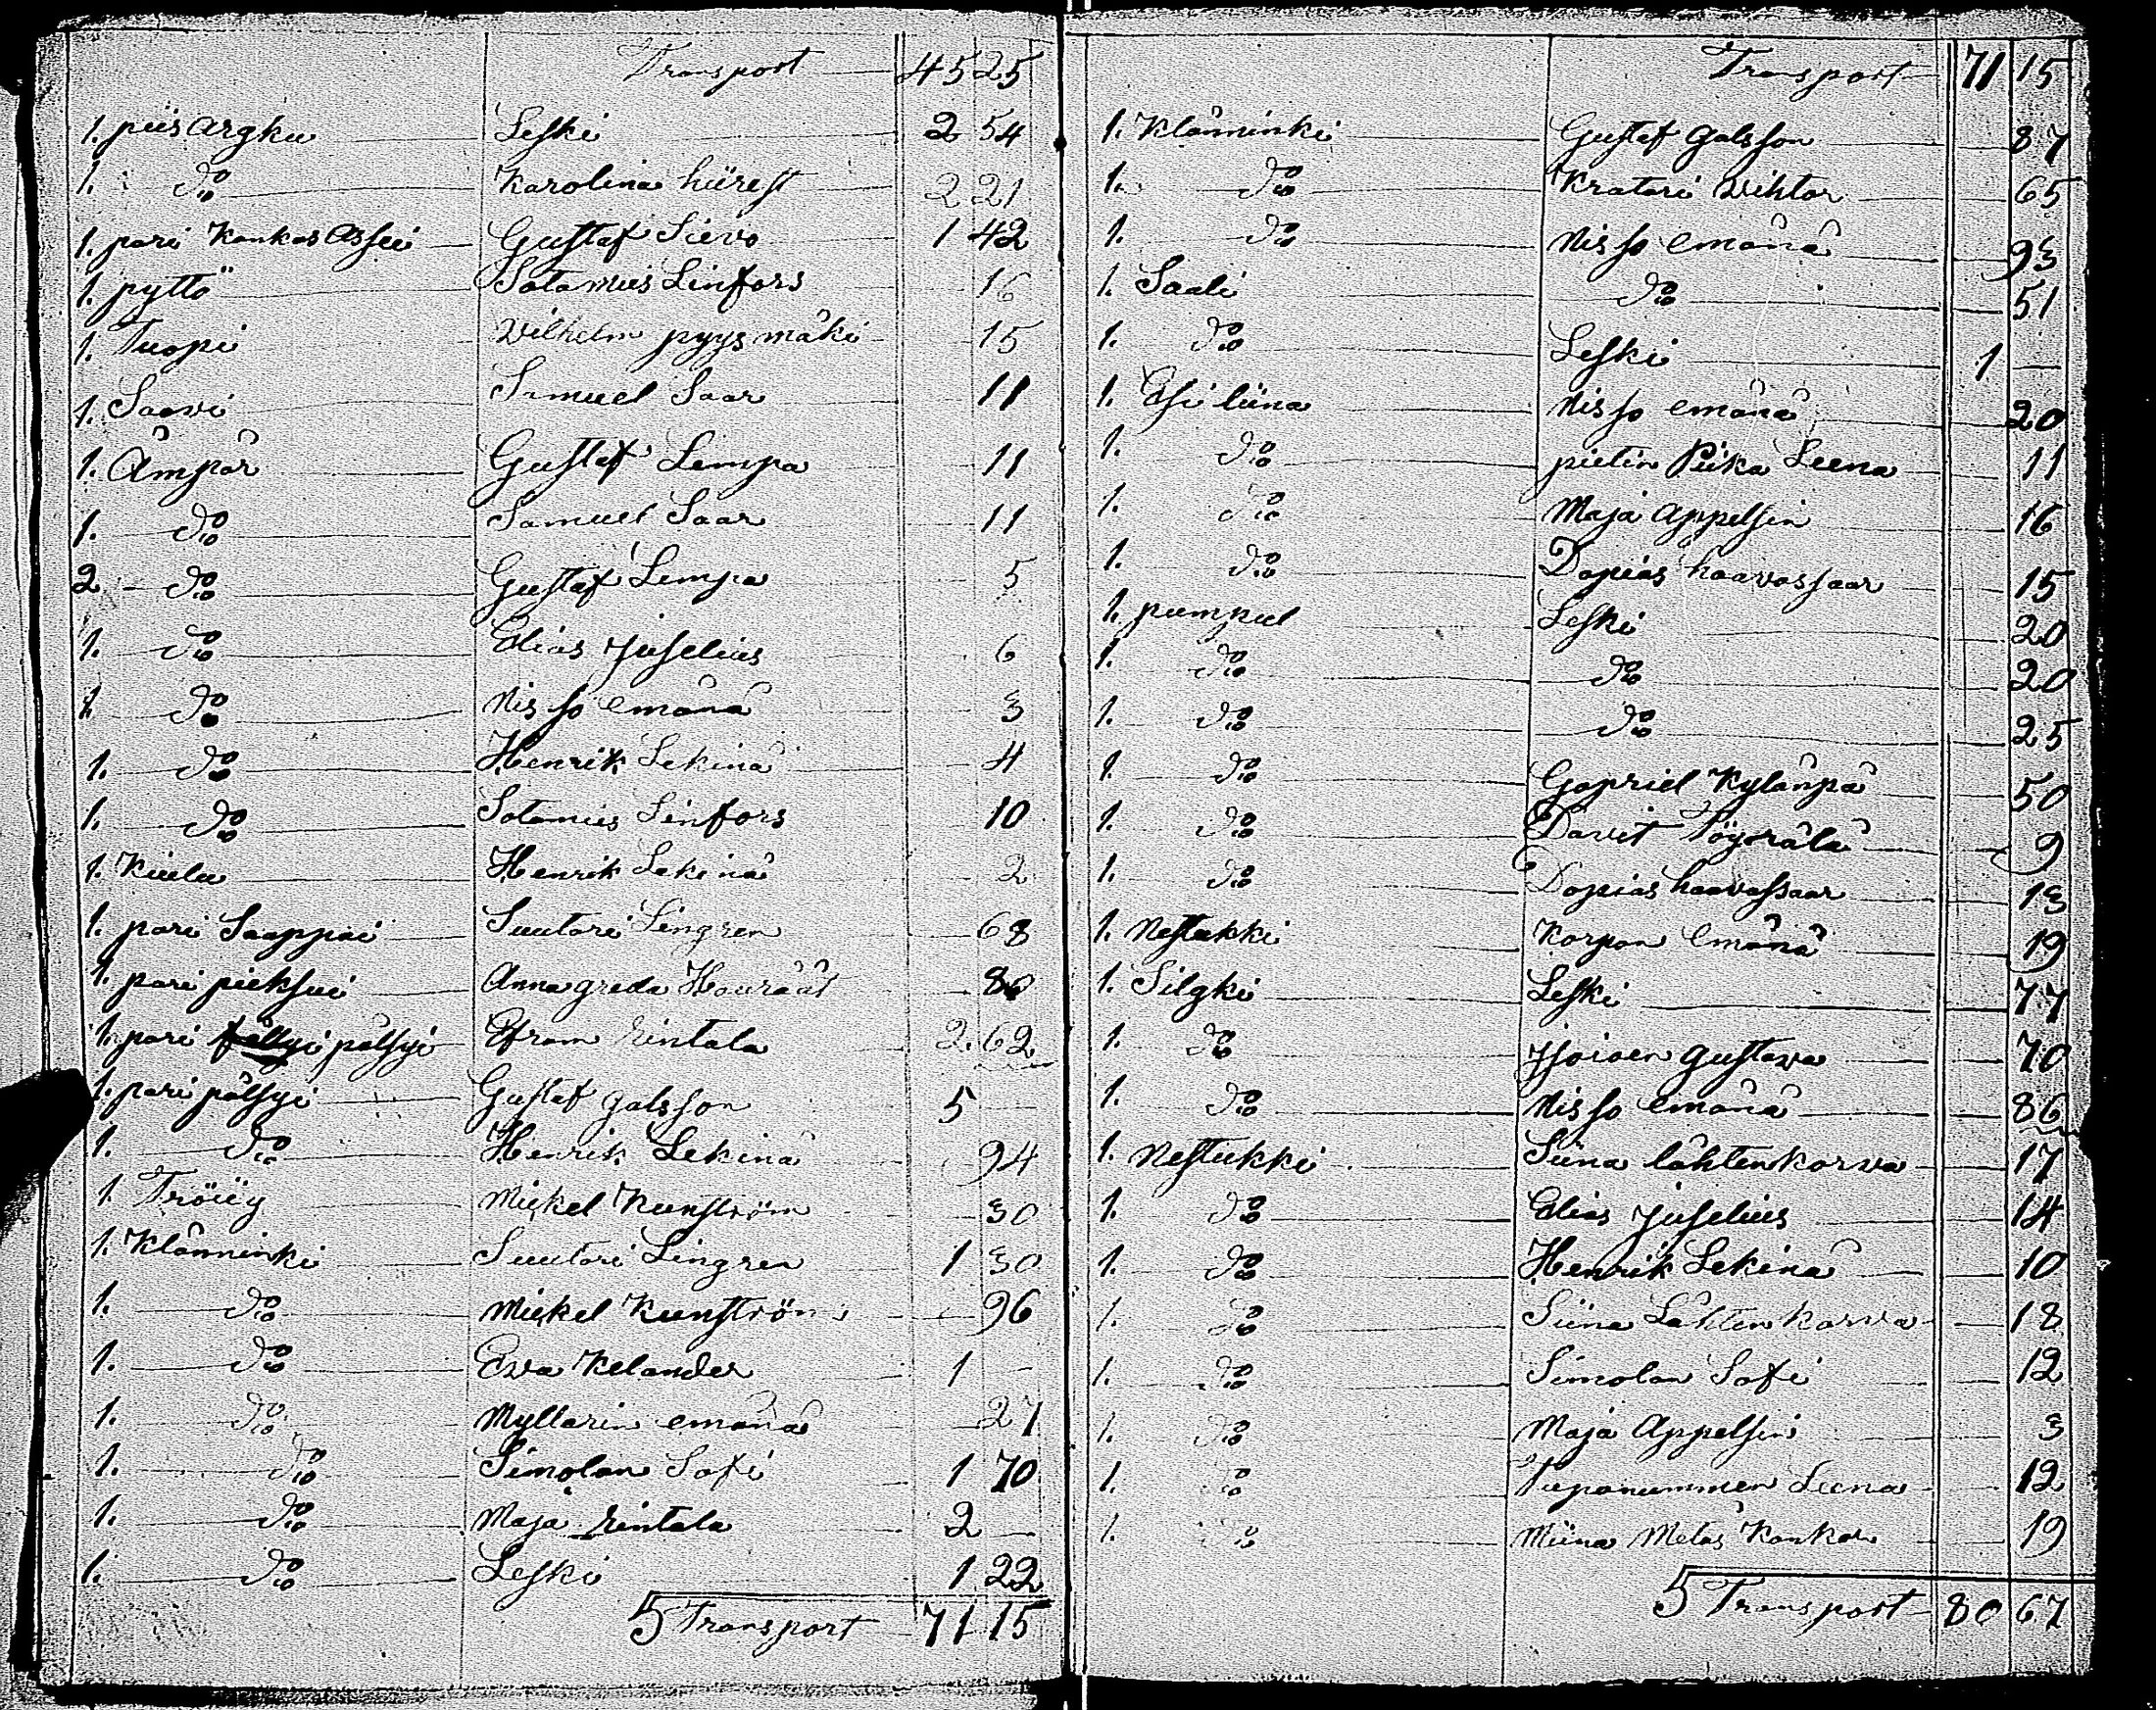 Transport 45 25
1. piis Argku Leski 2 54
1. do Karolina hiirest 2 21
1. pari Kankas Assui Gustaf Sievo 1 42
1. pyttö Sotamies Linfors 16
1. Tuopi Wilhelm pyysmäki 15
1. Saavi Samuel Saar 11
1. Ämpär Gustaf Lempa 11
1. do Samuel Saar 11
2 do Gustaf Lempa 5
1. do Elias Juselius 6
1. do Nisso emänä 3
1. do Henrik Lekinä 4
1. do Sotamies Linfors 10
1. Kiulu Henrik Lekinä 2
1. pari Saappai Suutari Lingren 68
1. pari pieksui Anna greda 80
1. pari pälsyi Efram Rintala 2 62
1. pari pälsyi Gustaf galsson 5
1. do Henrik Lekinä 94
1. Tröiiy Mickel Kunström 30
1. Klänninki Suutari Lingren 1 30
1. do Mickel Kunström 96
1. do Eva Kelander 1
1. do Myllarin emänä 27
1. do Simolan Sofi 1 70
1. do Maja Rintala 2
1. do Leski 1 22
5 Transport 71 15
Transport 71 15
1. Klänninki Gustaf galsson 87
1. do Kratari Wihtor 65
1. do Nisso emänä 93
1. Saali do 51
1. do Leski 1
1. Esi liina Nisso emänä 20
1. do pietin Piika Leena 11
1. do Maja Appelsin 16
1. do Dopias haavassaar 15
1. pumpul Leski 20
1. do do 20
1. do do 25
1. do Gapriel Kylänpä 50
1. do Davit Töyrälä 9
1. do Dopias haavassaar 13
1. Nestukki Korpon emänä 19
1. Silgki Leski 77
1. do gustava 70
1. do Nisso emänä 86
1. Nestukki Siina lähtenkorva 17
1. do Elias Juselius 14
1. do Henrik Lekinä 10
1. do Siina Lähtenkorva 18
1. do Simolan Sofi 12
1. do Maja Appelsin 3
1. do Leena 12
1. do Miina Metäs Kankar 19
5 Transport 80 67